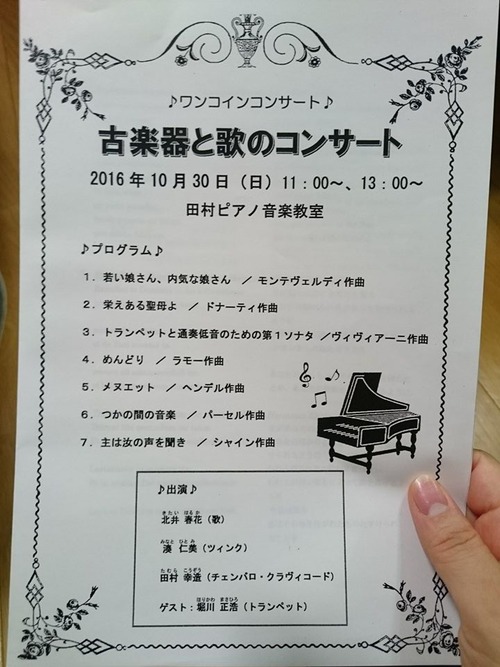 ♪ワンコインコンサート♪
古楽器と歌のコンサート
2016年10月30日(日)11:00~、13:00~
田村ピアノ音楽教室
♪プログラム♪
1．若い娘さん、内気な娘さん ／ モンテヴェルディ作曲
2．栄えある聖母よ ／ ドナーティ作曲
3．トランペットと通奏低音のための第1ソナタ ／ヴィヴィアーニ作曲
4．めんどり ／ ラモー作曲
5．メヌエット ／ ヘンデル作曲
6．つかの間の音楽 ／ パーセル作曲
7．主は汝の声を聞き ／ シャイン作曲
♪出演♪
きたい はるか
北井 春花(歌)
みなと ひとみ
湊 仁美(ツィンク)
たむら こうぞう
田村 幸造(チェンバロ・クラヴィコード)
ほりかわ まさひろ
ゲスト：堀川 正浩(トランペット)